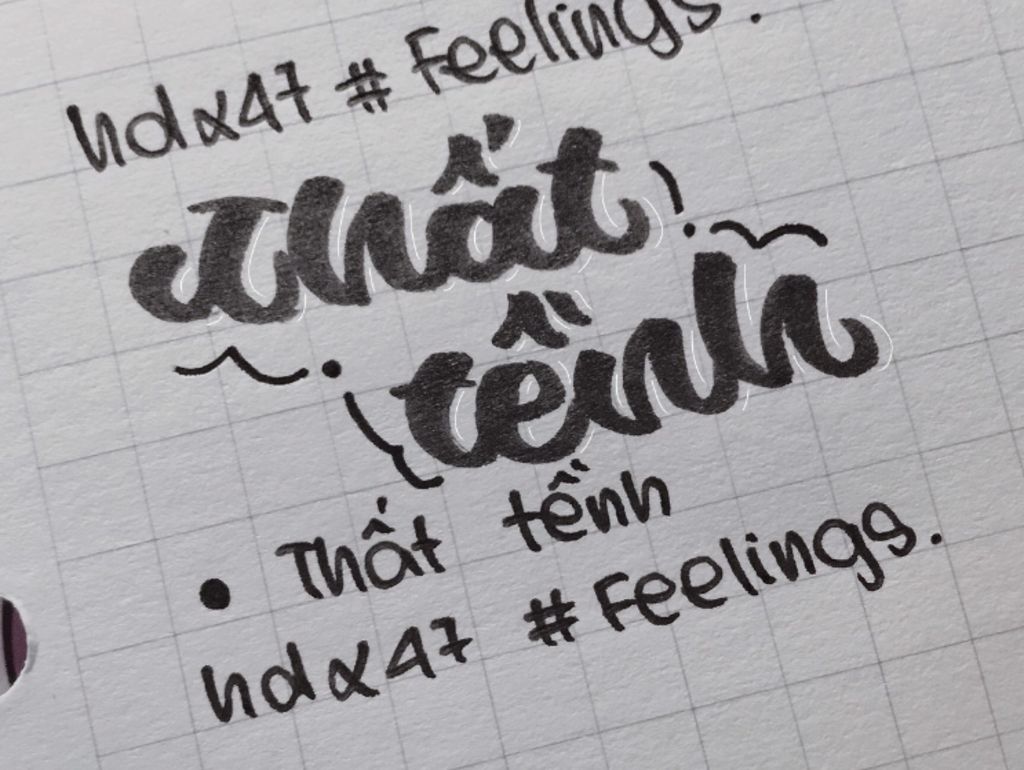 hdx47 # Feelings.
Thất
tềnh
• Thất tềnh
hdx47 # Feelings.